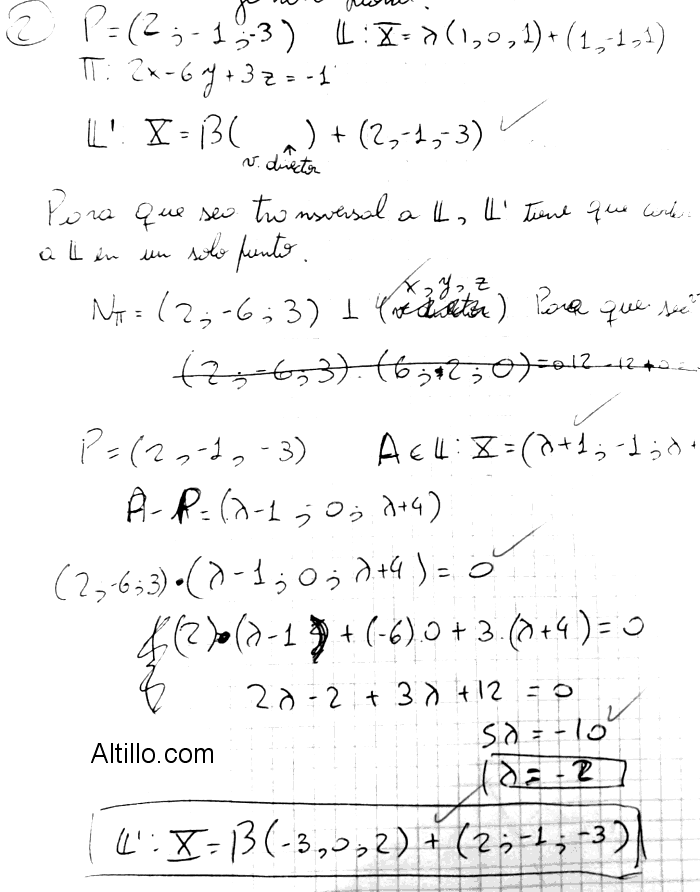 ② P=(2;-1;-3) 𝕃: X=λ(1,0,1)+(1,-1,1)
Π: 2x-6y+3z=-1
𝕃': X=β( )+(2,-1,-3)
v. director
Para que sea transversal a 𝕃, 𝕃' tiene que
a 𝕃 en un solo punto.
x,y,z
N_Π=(2;-6;3) ⊥ ( ) Para que sea
(2;-6;3).(6;2;0)=
P=(2,-1,-3) A∈𝕃: X=(λ+1;-1;λ+
A-P=(λ-1;0;λ+4)
(2,-6;3)•(λ-1;0;λ+4)=0
(2)•(λ-1)+(-6).0+3.(λ+4)=0
2λ-2+3λ+12=0
5λ=-10
Altillo.com
λ=-2
𝕃': X=β(-3,0,2)+(2;-1;-3)